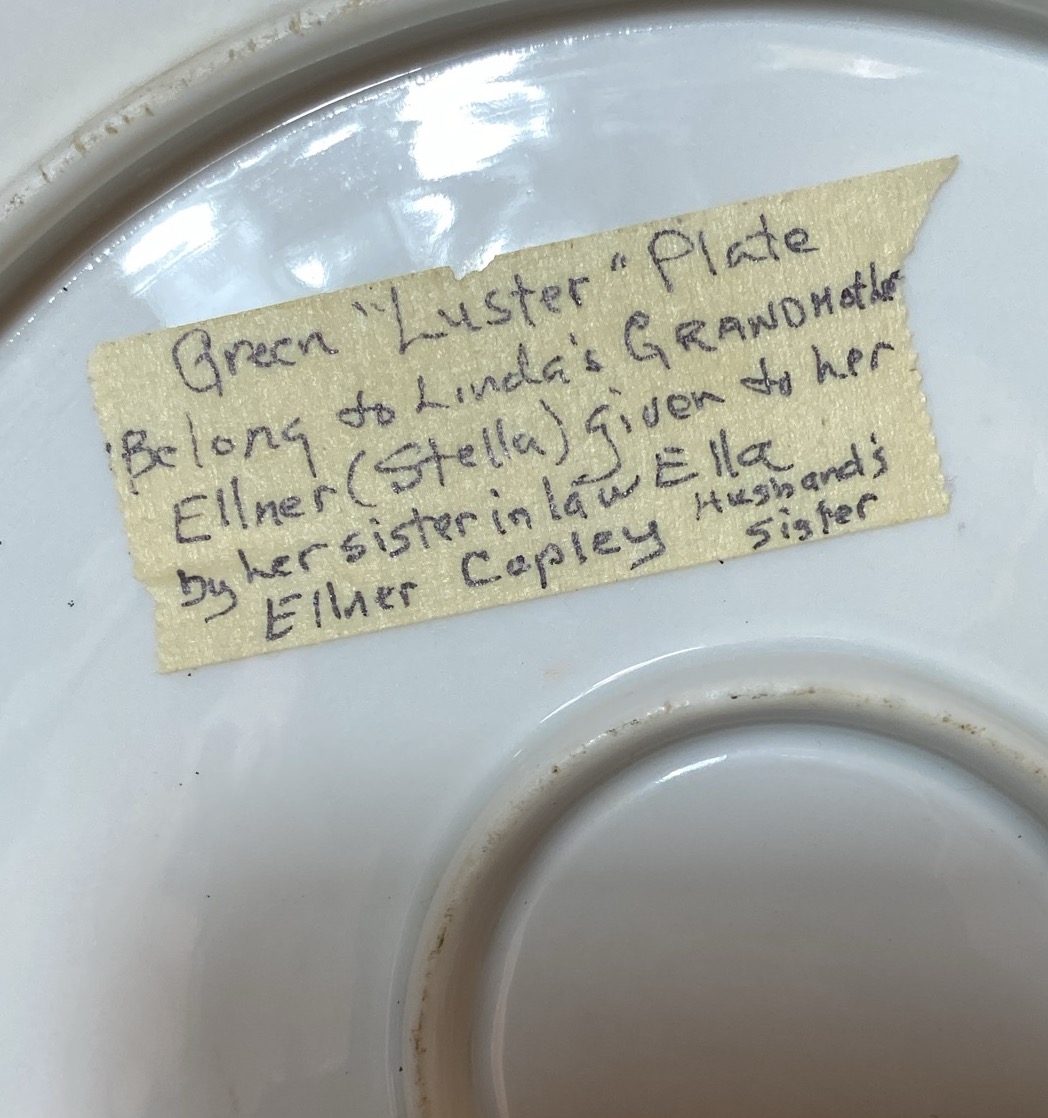 Green "Luster" Plate
Belong to Linda's GRANDMother
Ellner (Stella) given to her
by her sister in law Ella
Ellner Copley Husband's
Sister